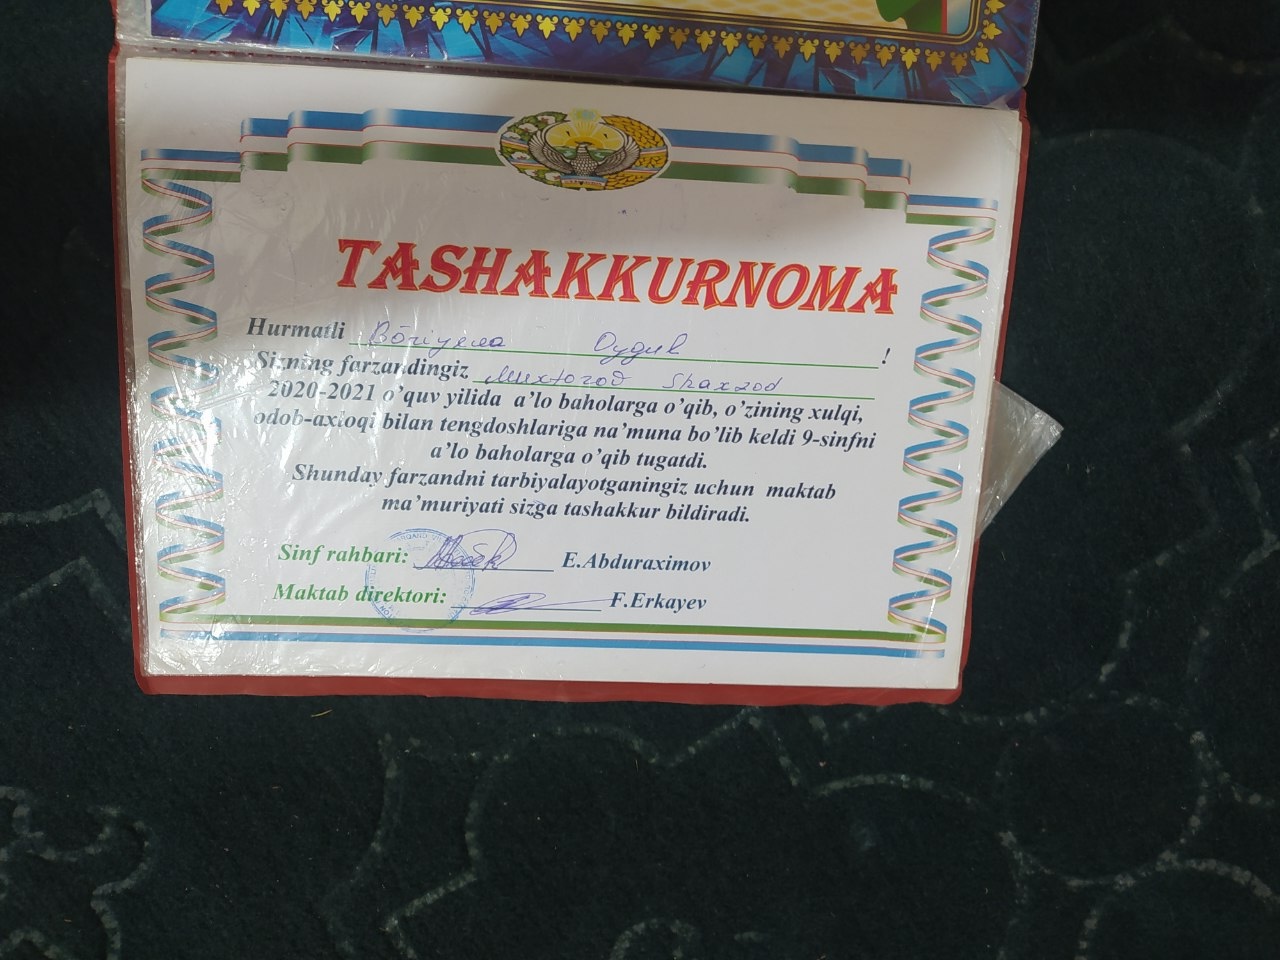 TASHAKKURNOMA
Hurmatli Bōriyeva Oygul !
Sizning farzandingiz Muxtorov Shaxzod
2020-2021 o'quv yilida a'lo baholarga o'qib, o'zining xulqi,
odob-axloqi bilan tengdoshlariga na'muna bo'lib keldi 9-sinfni
a'lo baholarga o'qib tugatdi.
Shunday farzandni tarbiyalayotganingiz uchun maktab
ma'muriyati sizga tashakkur bildiradi.
Sinf rahbari: E.Abduraximov
Maktab direktori: F.Erkayev